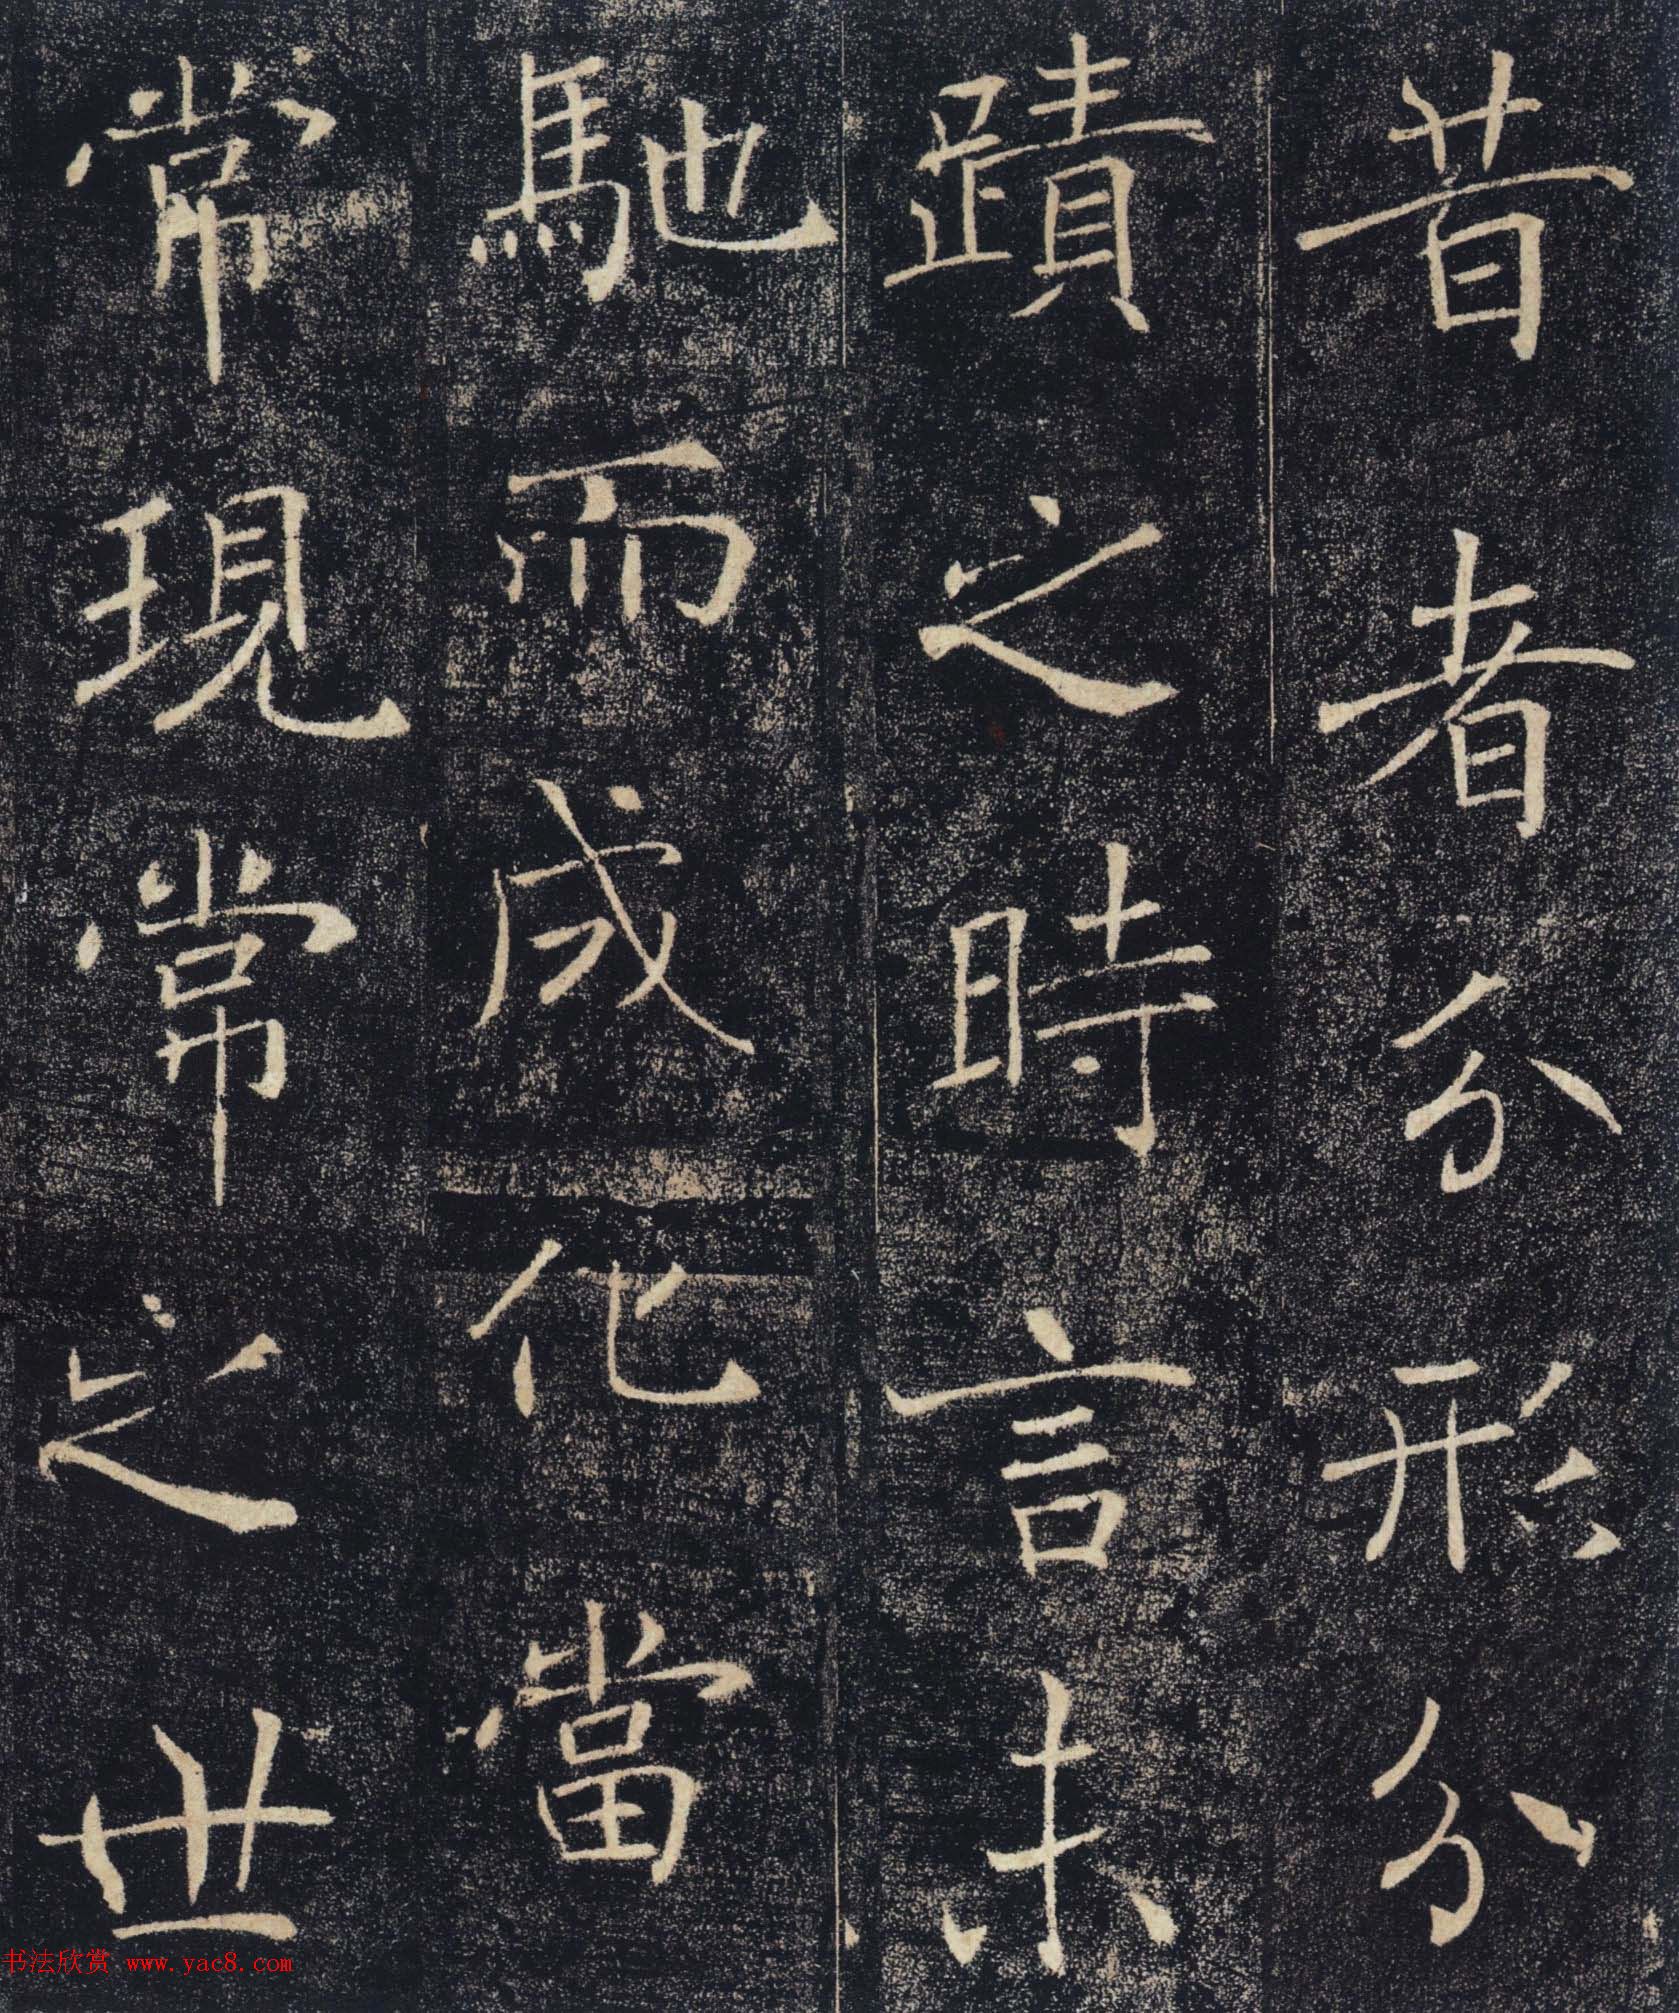 昔者分形分
蹟之時言未
馳而成化當
常現常之世
书法欣赏 www.yac8.com